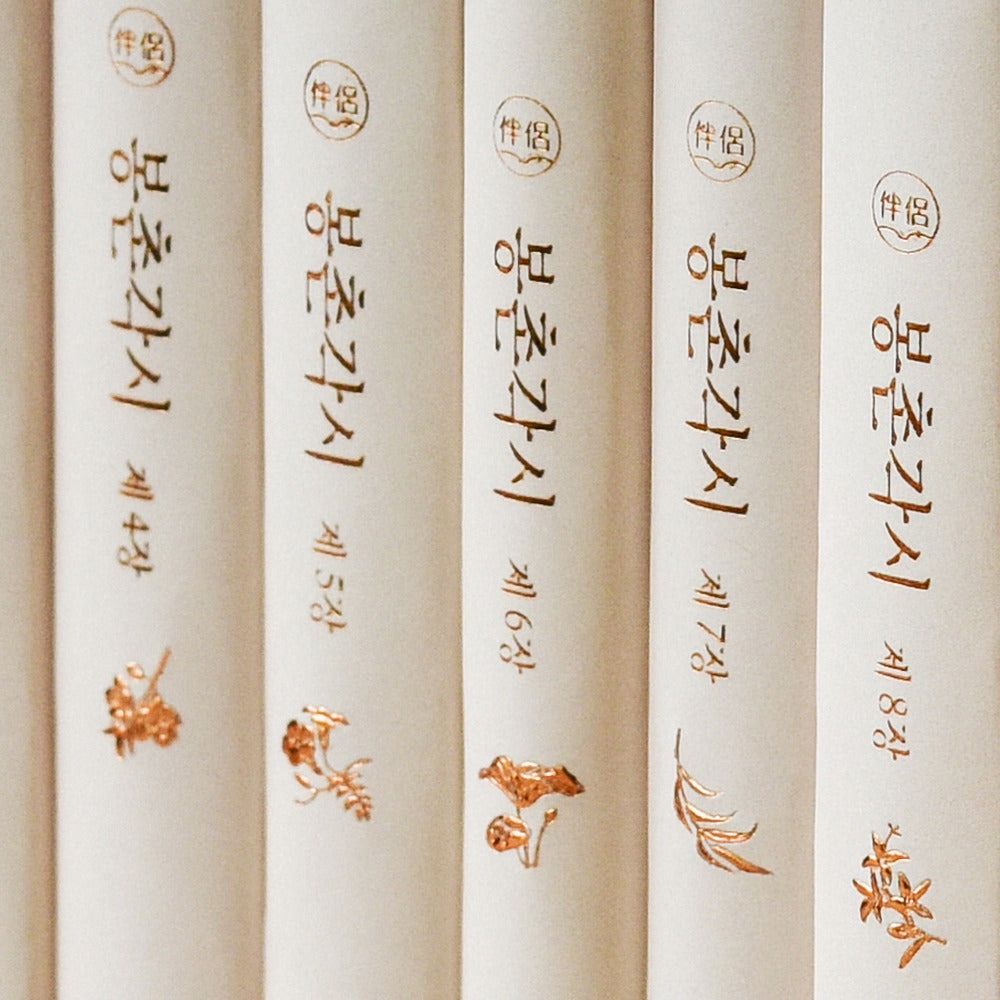 伴侶
봉춘각시 제4장
伴侶
봉춘각시 제5장
伴侶
봉춘각시 제6장
伴侶
봉춘각시 제7장
伴侶
봉춘각시 제8장